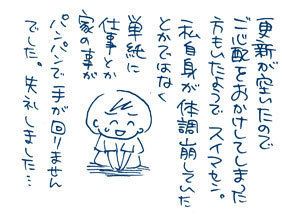 更新が空いたので
ご心配をおかけしてしまった
方もいたようで スイマセン。
私自身が体調崩していた
とかではなく
単純に
仕事とか
家の事が
パンパンで手が回りません
でした。失礼しました…